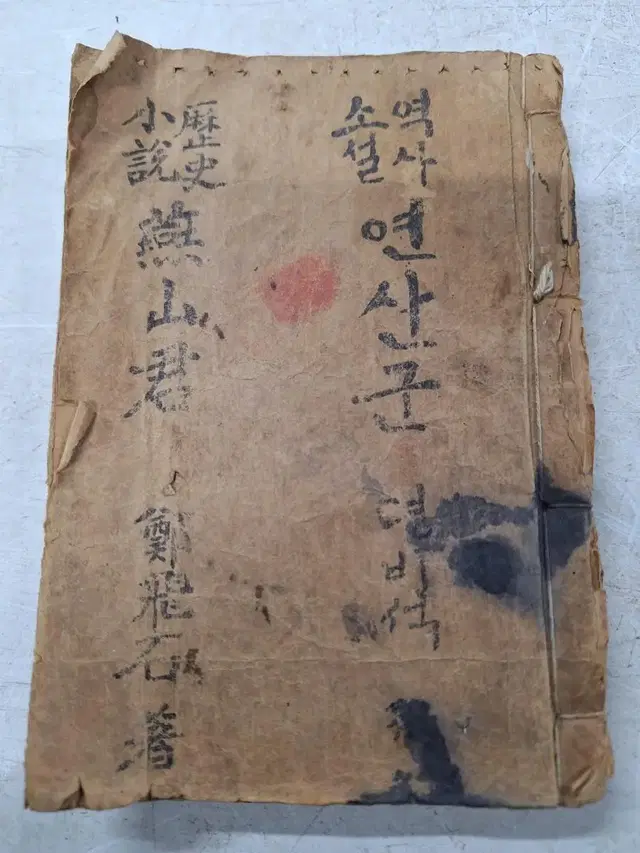 역사
소설
연산군 정비석
歷史
小說
燕山君 鄭飛石 著